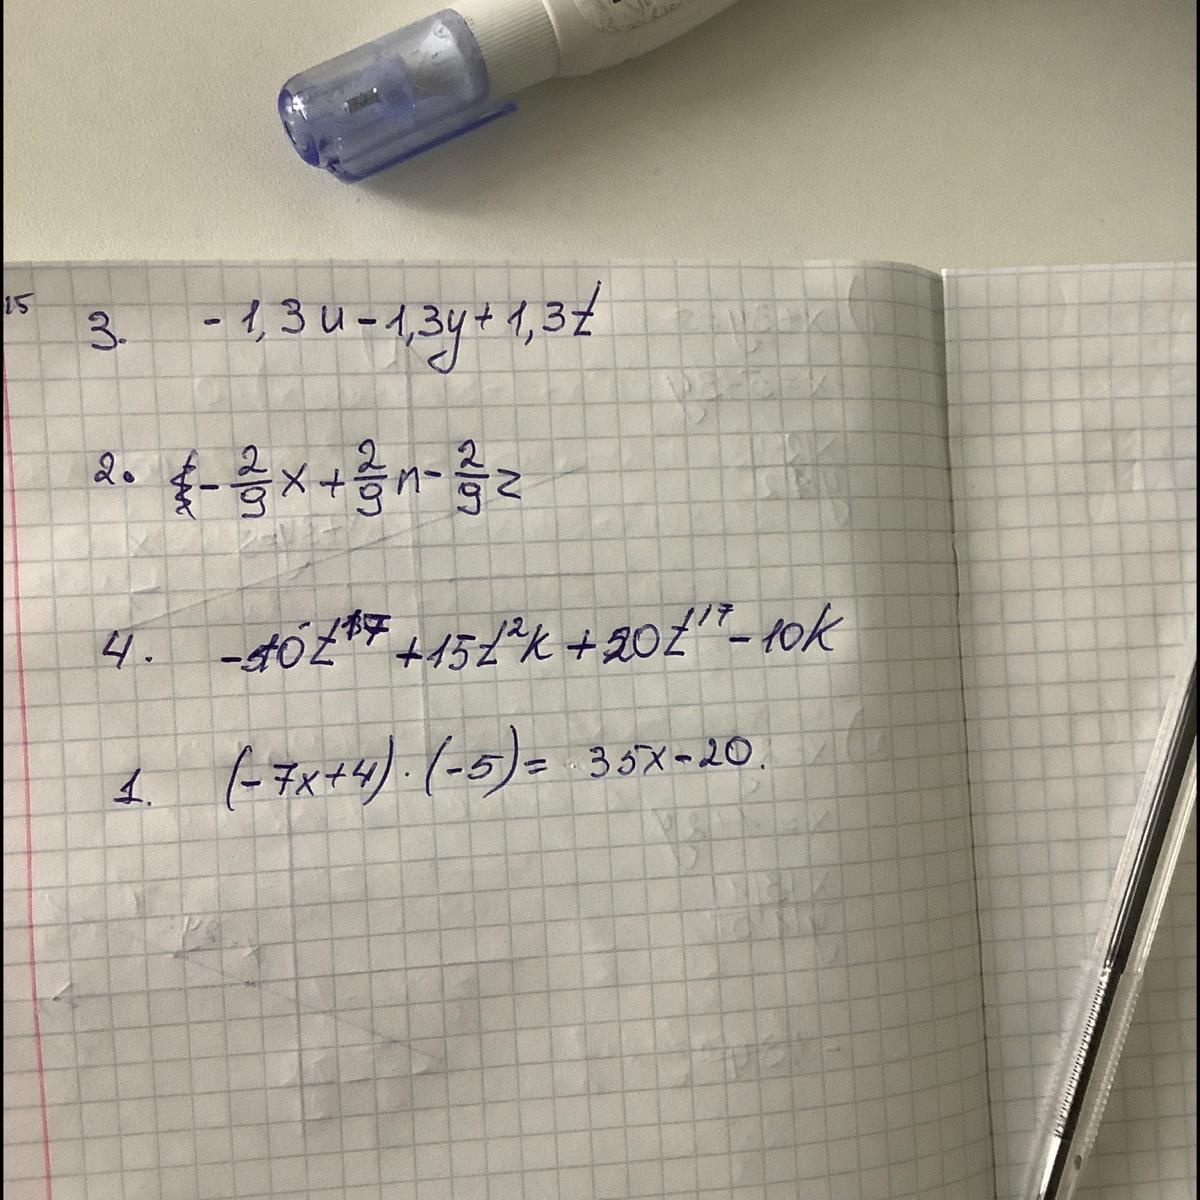 15
3. -1,3u-1,3y+1,3t
2. -2/9x+2/9n-2/9z
4. -10t^17+15t^2k+20t^17-10k
1. (-7x+4)·(-5)=35x-20.